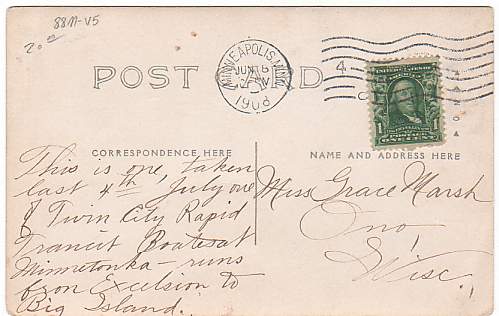 88M-V5
20.00
POST CARD
MINNEAPOLIS, MINN.
JUN 6
1908
4
1 1
ONE CENT
CORRESPONDENCE HERE
NAME AND ADDRESS HERE
This is one, taken
last 4th July one
of Twin City Rapid
Transit Boats at
Minnetonka - runs
from Excelsior to
Big Island.
Miss Grace Marsh
Ono,
Wisc.